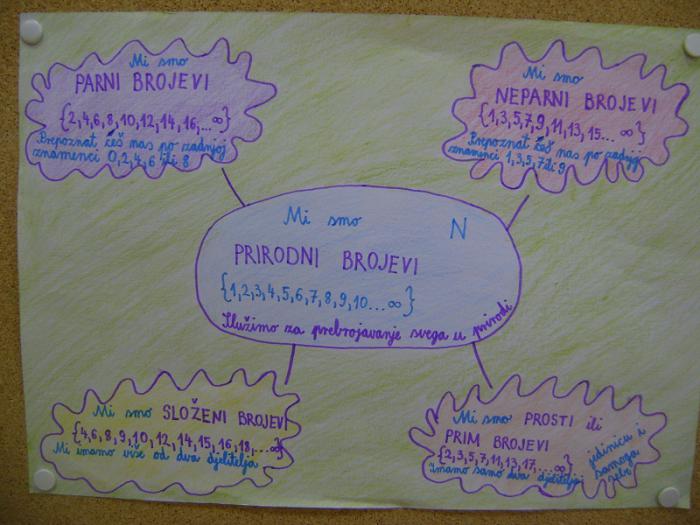 Mi smo
PARNI BROJEVI
{2,4,6,8,10,12,14,16,...∞}
Prepoznat ćeš nas po zadnjoj
znamenci 0,2,4,6 ili 8
Mi smo
NEPARNI BROJEVI
{1,3,5,7,9,11,13,15...∞}
Prepoznat ćeš nas po zadnjoj
znamenci 1,3,5,7 ili 9
Mi smo N
PRIRODNI BROJEVI
{1,2,3,4,5,6,7,8,9,10...∞}
Služimo za prebrojavanje svega u prirodi
Mi smo SLOŽENI BROJEVI
{4,6,8,9,10,12,14,15,16,18,...∞}
Mi imamo više od dva djelitelja
Mi smo PROSTI ili
PRIM BROJEVI
{2,3,5,7,11,13,17,...∞}
Imamo samo dva djelitelja
jedinicu i
samoga
sebe